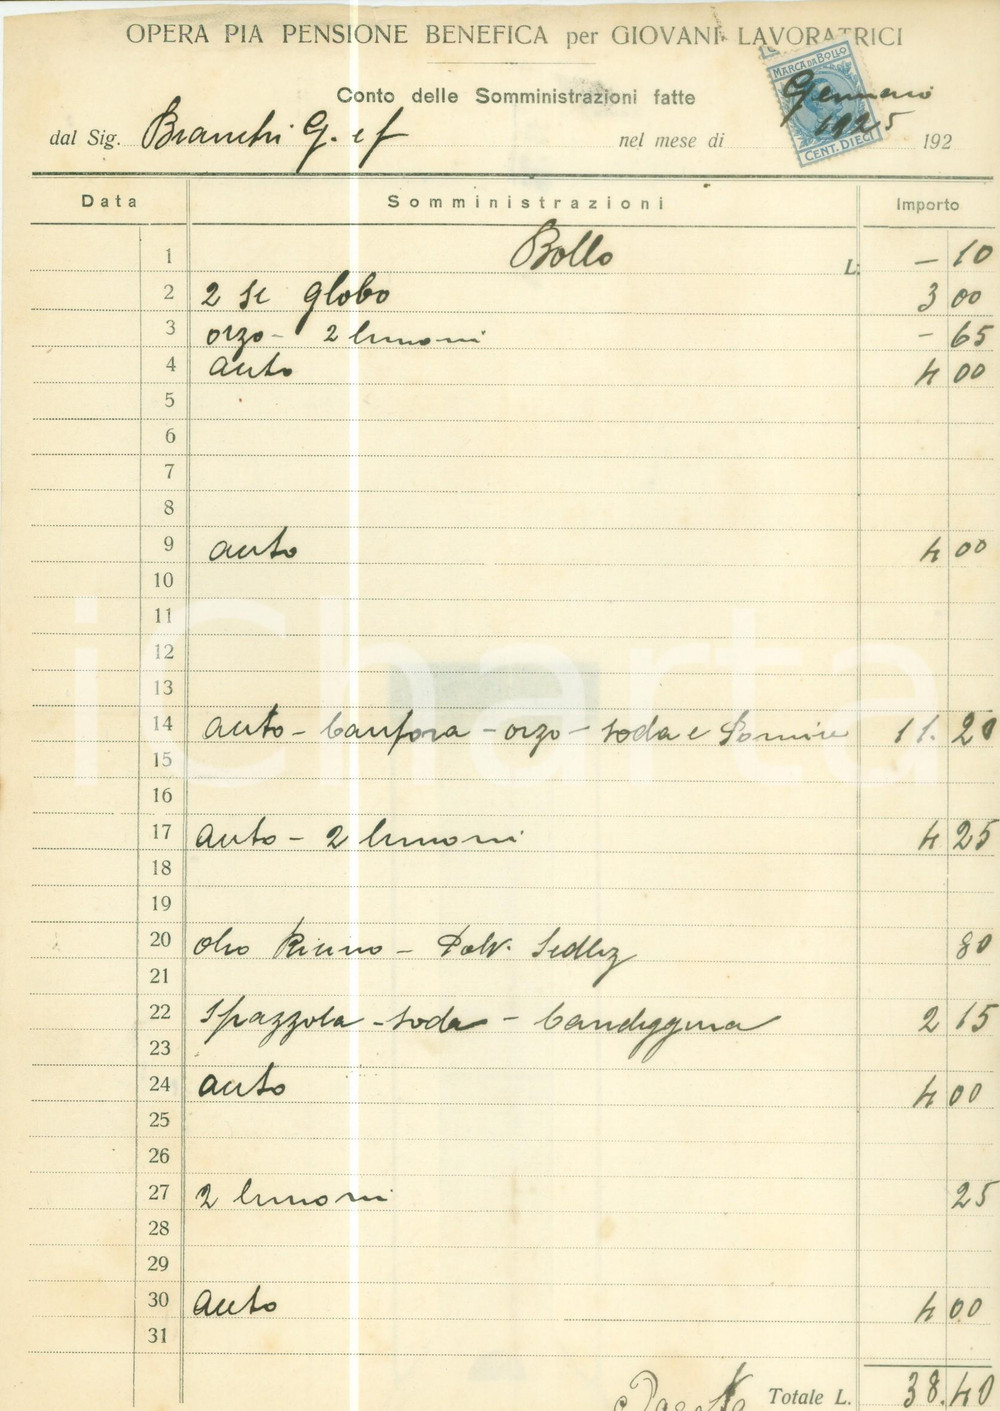 OPERA PIA PENSIONE BENEFICA per GIOVANI LAVORATRICI
MARCA DA BOLLO
CENT. DIECI
Conto delle Somministrazioni fatte
dal Sig. Branchi G. e f nel mese di Gennaio 1925 192
Data Somministrazioni Importo
1 Bollo L: – 10
2 2 globo 3 00
3 orzo – 2 limoni – 65
4 auto 4 00
5
6
7
8
9 auto 4 00
10
11
12
13
14 auto – Canfora – orzo – soda e 11.20
15
16
17 auto – 2 limoni 4 25
18
19
20 olio Ricino – Polv. Sedliz 80
21
22 Spazzola – soda – Candeggina 2 15
23
24 auto 4 00
25
26
27 2 limoni 25
28
29
30 auto 4 00
31
Totale L. 38.40
iCharta